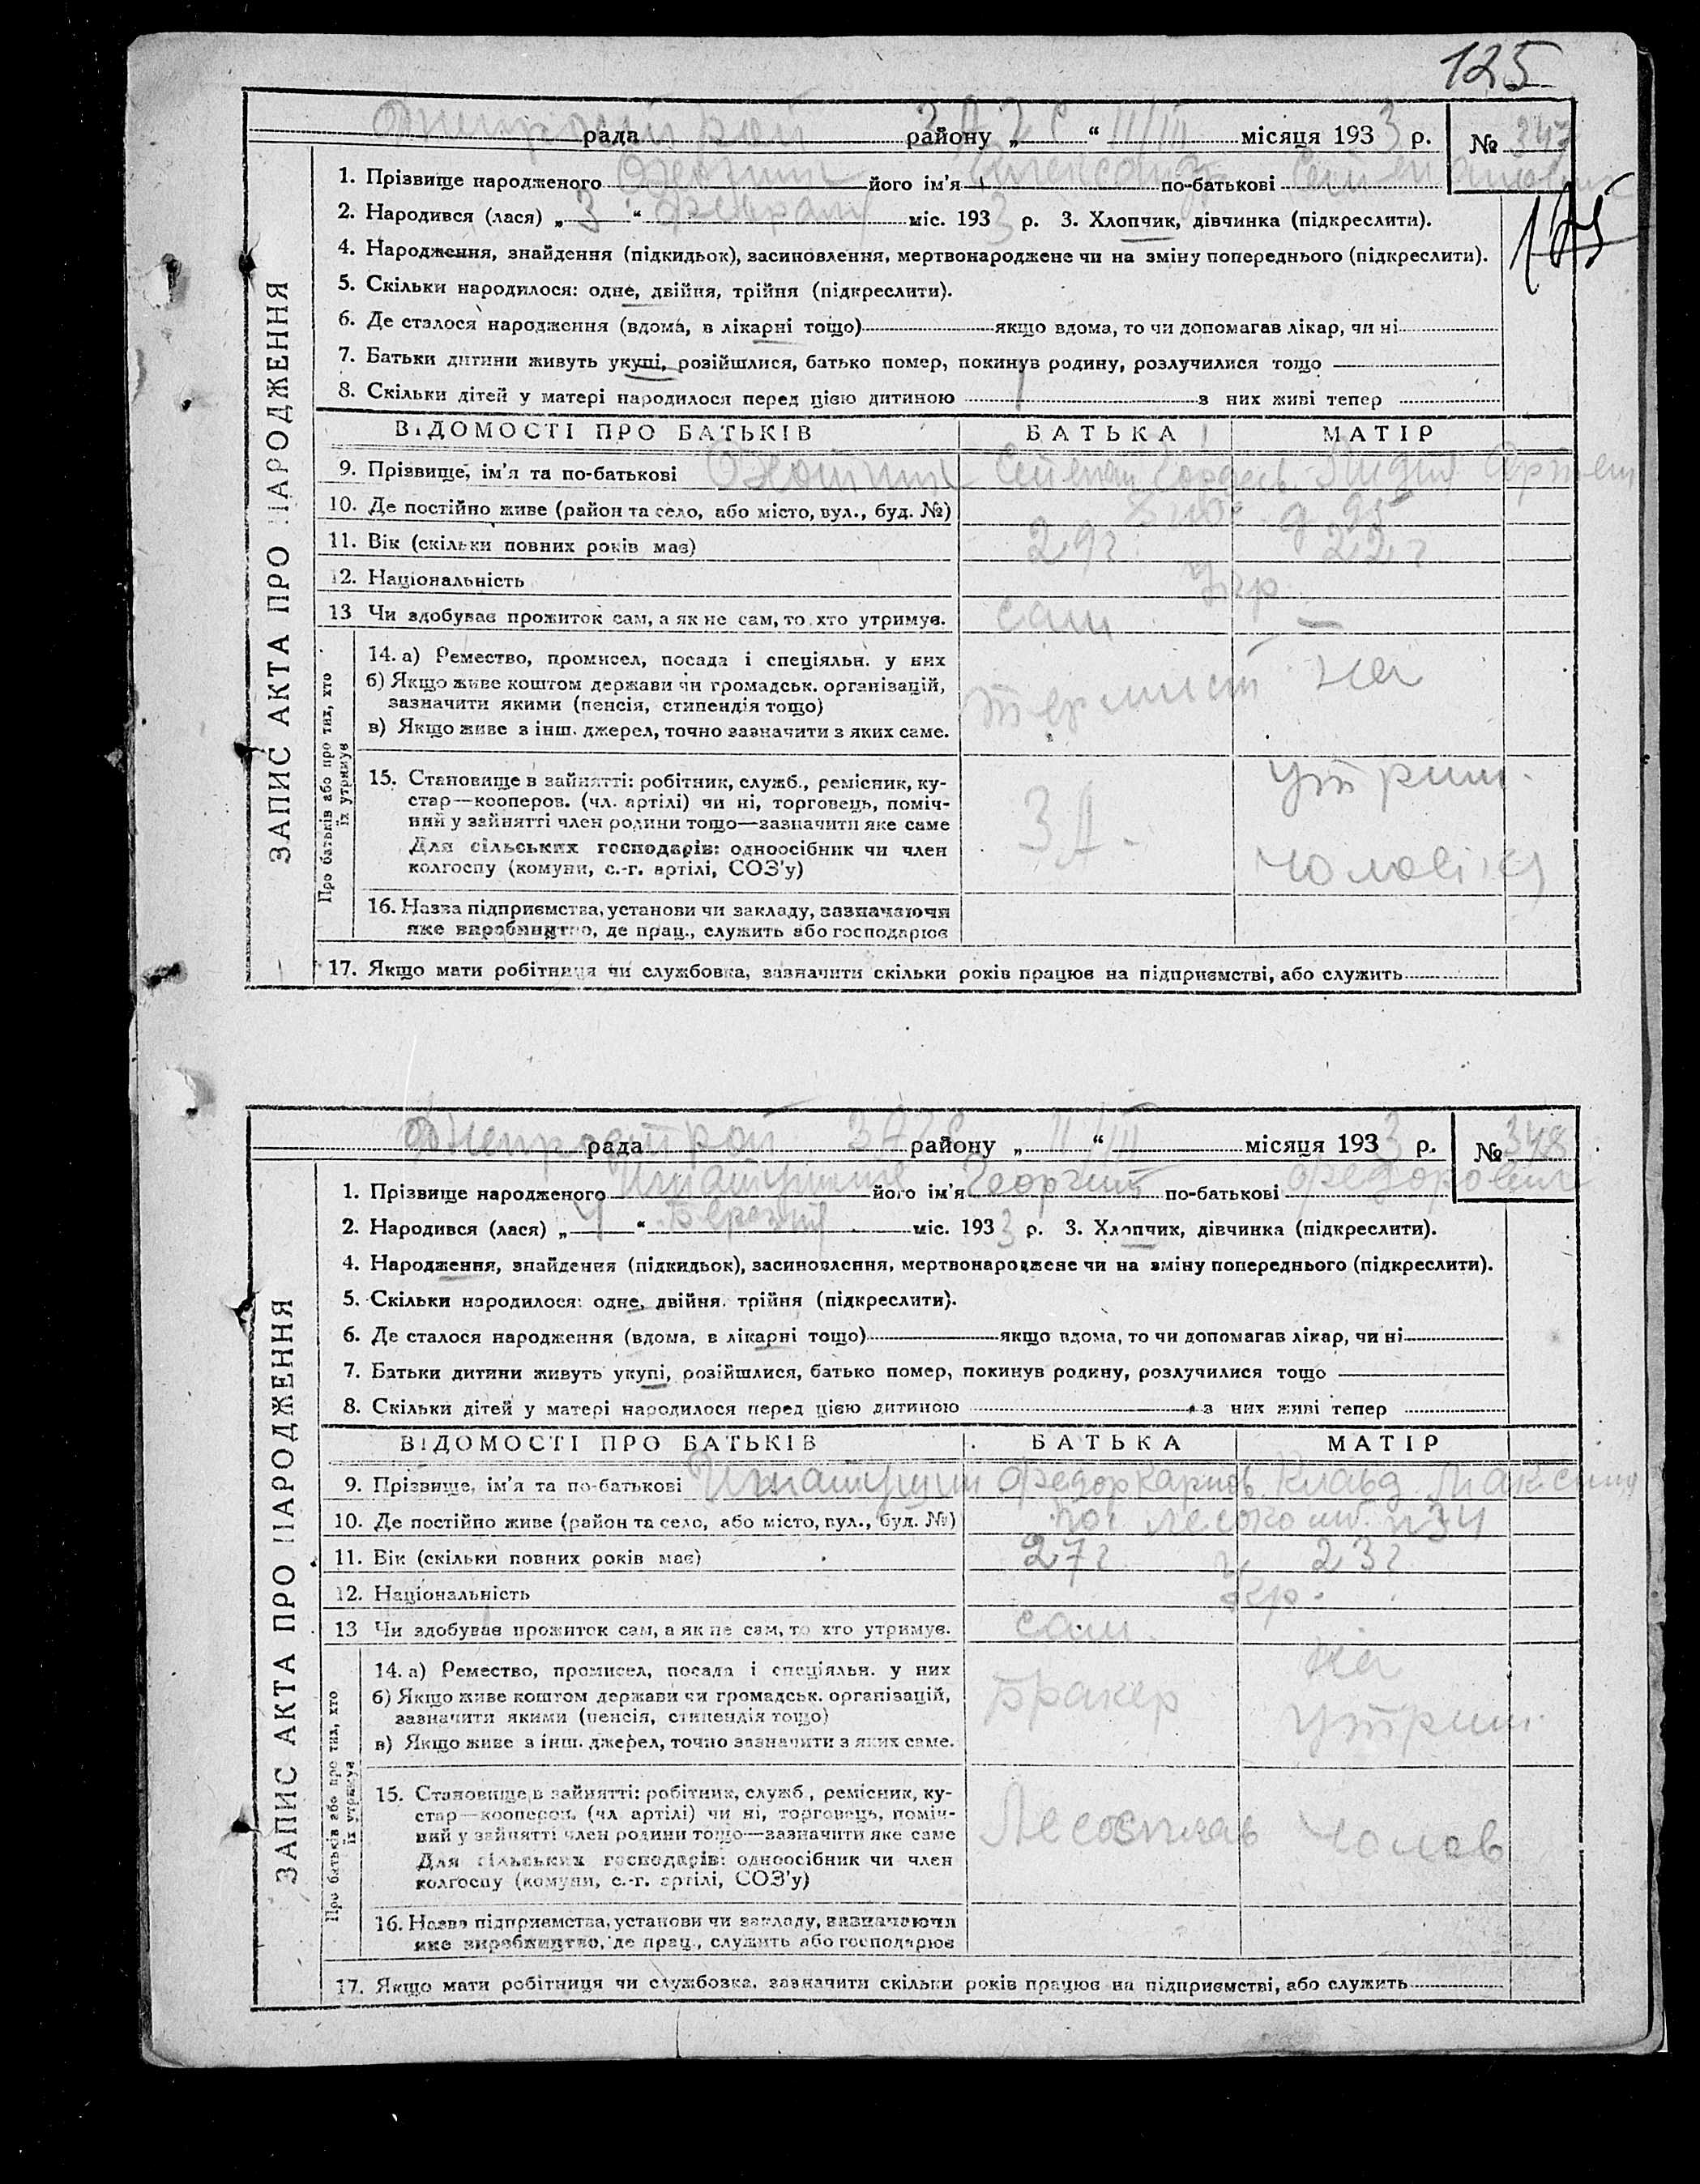 125
Днепрострой рада ЗАГС району „ “ 11/III місяця 1933 р. № 347
1. Прізвище народженого його ім'я Александр по-батькові Степанович
125
2. Народився (лася) „ 3 “ февраля міс. 1933 р. 3. Хлопчик, дівчинка (підкреслити).
4. Народження, знайдення (підкидьок), засиновлення, мертвонароджене чи на зміну попереднього (підкреслити).
5. Скільки народилося: одне, двійня, трійня (підкреслити).
6. Де сталося народження (вдома, в лікарні тощо) якщо вдома, то чи допомагав лікар, чи ні
7. Батьки дитини живуть укупі, розійшлися, батько помер, покинув родину, розлучилися тощо
8. Скільки дітей у матері народилося перед цією дитиною з них живі тепер
ЗАПИС АКТА ПРО НАРОДЖЕННЯ
ВІДОМОСТІ ПРО БАТЬКІВ БАТЬКА МАТІР
9. Прізвище, ім'я та по-батькові Степан Гордеев. Лидия Артем
10. Де постійно живе (район та село, або місто, вул., буд. №) д 95
11. Вік (скільки повних років має) 29 г 22 г
12. Національність Укр
13 Чи здобуває прожиток сам, а як не сам, то хто утримує. сам —
Про батьків або про тих, хто їх утримує
14. а) Ремество, промисел, посада і спеціяльн. у них
б) Якщо живе коштом держави чи громадськ. організацій,
зазначити якими (пенсія, стипендія тощо) термист на
в) Якщо живе з інш. джерел, точно зазначити з яких саме.
15. Становище в зайнятті: робітник, служб., ремісник, ку- утрим.
стар—кооперов. (чл. артілі) чи ні, торговець, поміч-
ний у зайнятті член родини тощо—зазначити яке саме
Для сільських господарів: одноосібник чи член
колгоспу (комуни, с.-г. артілі, СОЗ'у) чоловіка
16. Назва підприємства, установи чи закладу, зазначаючи
яке виробництво, де прац., служить або господарює
17. Якщо мати робітниця чи службовка, зазначити скільки років працює на підприємстві, або служить
Днепрострой рада ЗАГС району „ “ 11/III місяця 1933 р. № 348
1. Прізвище народженого його ім'я Георгий по-батькові Федорович
2. Народився (лася) „ 4 “ Березня міс. 1933 р. 3. Хлопчик, дівчинка (підкреслити).
4. Народження, знайдення (підкидьок), засиновлення, мертвонароджене чи на зміну попереднього (підкреслити).
5. Скільки народилося: одне, двійня, трійня (підкреслити).
6. Де сталося народження (вдома, в лікарні тощо) якщо вдома, то чи допомагав лікар, чи ні
7. Батьки дитини живуть укупі, розійшлися, батько помер, покинув родину, розлучилися тощо
8. Скільки дітей у матері народилося перед цією дитиною з них живі тепер
ЗАПИС АКТА ПРО НАРОДЖЕННЯ
ВІДОМОСТІ ПРО БАТЬКІВ БАТЬКА МАТІР
9. Прізвище, ім'я та по-батькові Федор Карпов. Клавд. Максимо
10. Де постійно живе (район та село, або місто, вул., буд. №)
11. Вік (скільки повних років має) 27 г 23 г
12. Національність Укр.
13 Чи здобуває прожиток сам, а як не сам, то хто утримує. сам.
Про батьків або про тих, хто їх утримує
14. а) Ремество, промисел, посада і спеціяльн. у них на
б) Якщо живе коштом держави чи громадськ. організацій, Бракер
зазначити якими (пенсія, стипендія тощо) утрим.
в) Якщо живе з інш. джерел, точно зазначити з яких саме.
15. Становище в зайнятті: робітник, служб., ремісник, ку-
стар—кооперов. (чл. артілі) чи ні, торговець, поміч-
ний у зайнятті член родини тощо—зазначити яке саме Лесосплав чолов
Для сільських господарів: одноосібник чи член
колгоспу (комуни, с.-г. артілі, СОЗ'у)
16. Назва підприємства, установи чи закладу, зазначаючи
яке виробництво, де прац., служить або господарює
17. Якщо мати робітниця чи службовка, зазначити скільки років працює на підприємстві, або служить